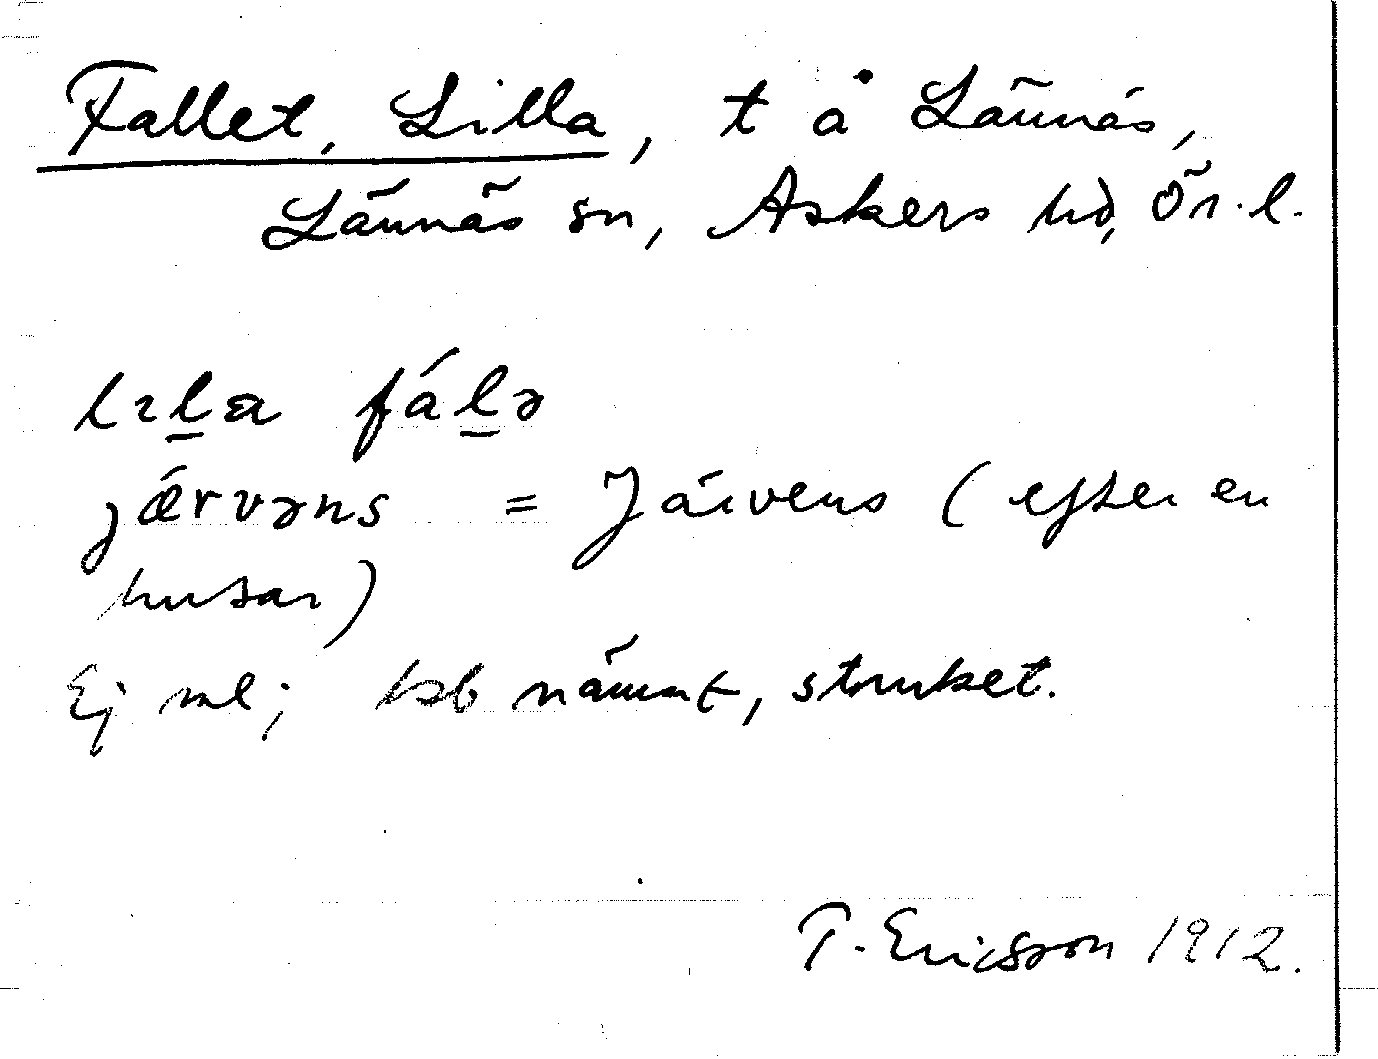 Fallet, Lilla, t å Lännäs,
Lännäs sn, Askers hd, Ör. l.
lɪl̲a fál̲ə
jǽrvəns = Järvens (efter en
husar)
Ej ml; bsb nämnt, struket.
T. Ericsson 1912.